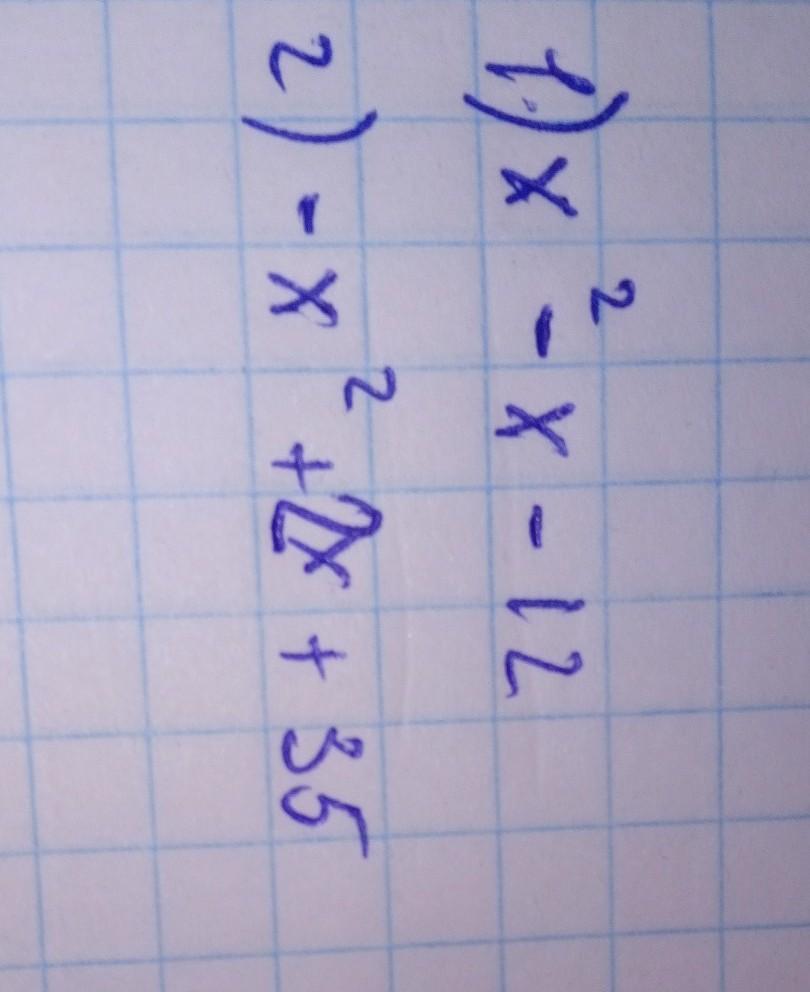 1) x² - x - 12
2) - x² + 2x + 35